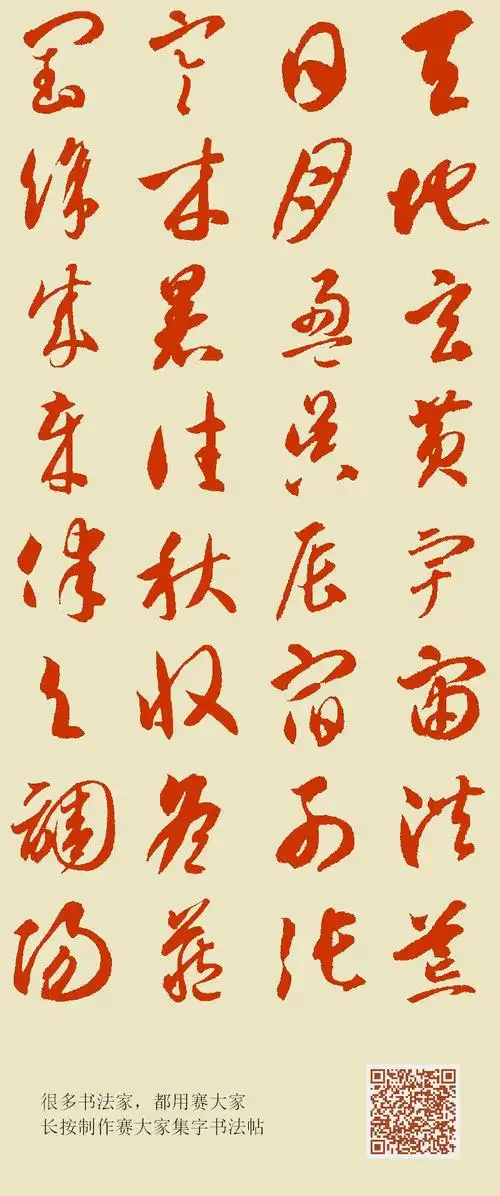 天地玄黃宇宙洪荒
日月盈昃辰宿列張
寒來暑往秋收冬藏
閏餘成歲律呂調陽
很多书法家，都用赛大家
长按制作赛大家集字书法帖